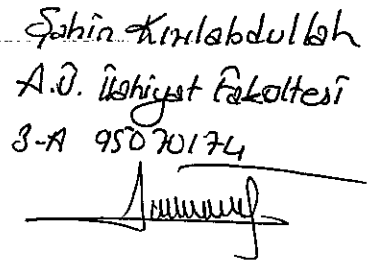 Şahin Kızılabdullah
A.Ü. İlahiyat Fakültesi
3-A 95070174